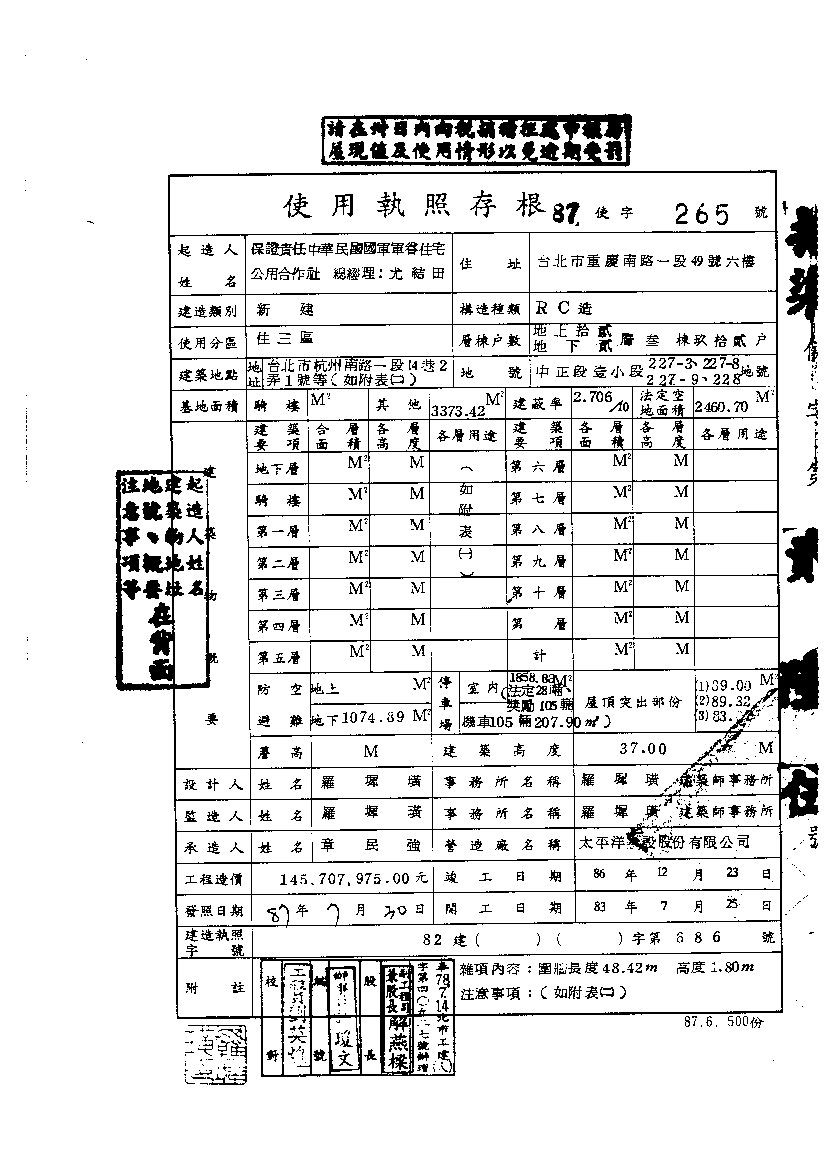 請在卅日內向稅捐稽征處申報房
屋現值及使用情形以免逾期受罰
使用執照存根 87. 使字 265 號
起造人姓名 保證責任中華民國國軍軍眷住宅公用合作社 總經理：尤結田 住址 台北市重慶南路一段49號六樓
建造類別 新建 構造種類 RC造
使用分區 住三區 層棟户數 地上拾貳 地下貳 層 叁 棟玖拾貳户
建築地點 地址 台北市杭州南路一段14巷2弄1號等（如附表㈡） 地號 中正段壹小段 227-3、227-8 227-9、228 地號
基地面積 騎樓 M² 其他 3373.42 M² 建蔽率 2.706/10 法定空地面積 2460.70 M²
建築物概要
建築要項 合層面積 各層高度 各層用途 建築要項 各層面積 各層高度 各層用途
地下層 M² M （如附表㈠） 第六層 M² M
騎樓 M² M 第七層 M² M
第一層 M² M 第八層 M² M
第二層 M² M 第九層 M² M
第三層 M² M 第十層 M² M
第四層 M² M 第 層 M² M
第五層 M² M 計 M² M
防空避難 地上 M² 地下1074.89 M² 停車場 室內 1858.88M² （法定28輛、獎勵105輛 機車105輛207.90㎡） 屋頂突出部份 (1)89.00 M² (2)89.32 (3)83.
簷高 M 建築高度 37.00 M
設計人 姓名 羅 璜 事務所名稱 羅 璜 建築師事務所
監造人 姓名 羅 璜 事務所名稱 羅 璜 建築師事務所
承造人 姓名 章民強 營造廠名稱 太平洋建設股份有限公司
工程造價 145,707,975.00元 竣工日期 86年12月23日
發照日期 87年7月30日 開工日期 83年7月25日
建造執照字號 82建（ ）（ ）字第686 號
附註 雜項內容：圍牆長度48.42m 高度1.80m
注意事項：（如附表㈡）
起造人姓名
建築物地址
地號、概要
注意事項等
在背面
校對
號
股長
78.7.14北市工建
87.6. 500份